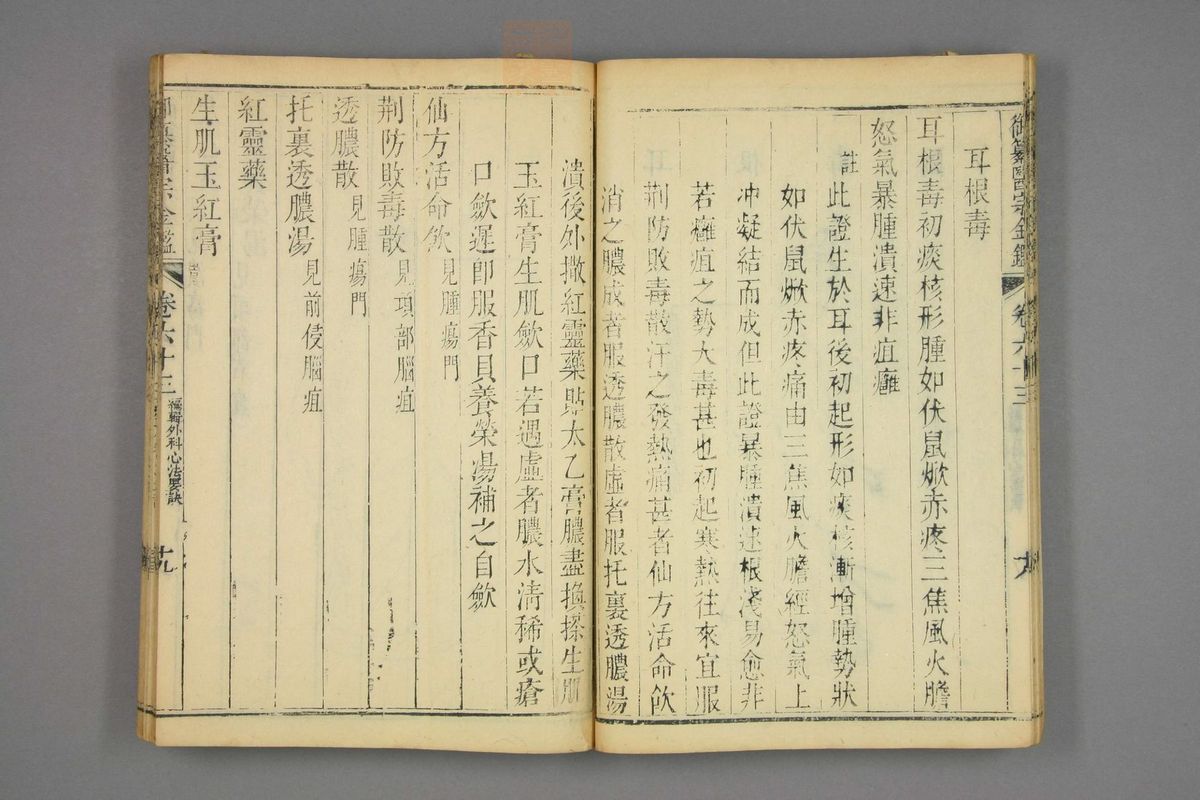 御纂醫宗金鑑 卷六十三
耳根毒
耳根毒初痰核形腫如伏鼠焮赤疼三焦風火膽
怒氣暴腫潰速非疽癰
註此證生於耳後初起形如痰核漸增腫勢狀
如伏鼠焮赤疼痛由三焦風火膽經怒氣上
冲凝結而成但此證暴腫潰速根淺易愈非
若癰疽之勢大毒甚也初起寒熱往來宜服
荆防敗毒散汗之發熱痛甚者仙方活命飲
消之膿成者服透膿散虛者服托裏透膿湯
潰後外撒紅靈藥貼太乙膏膿盡換搽生肌
玉紅膏生肌歛口若遇虛者膿水清稀或瘡
口歛遲即服香貝養榮湯補之自歛
仙方活命飲見腫瘍門
荆防敗毒散見項部腦疽
透膿散見腫瘍門
托裏透膿湯見前侵腦疽
紅靈藥
生肌玉紅膏
金鑑 卷六十三 編輯外科心法要訣 十九